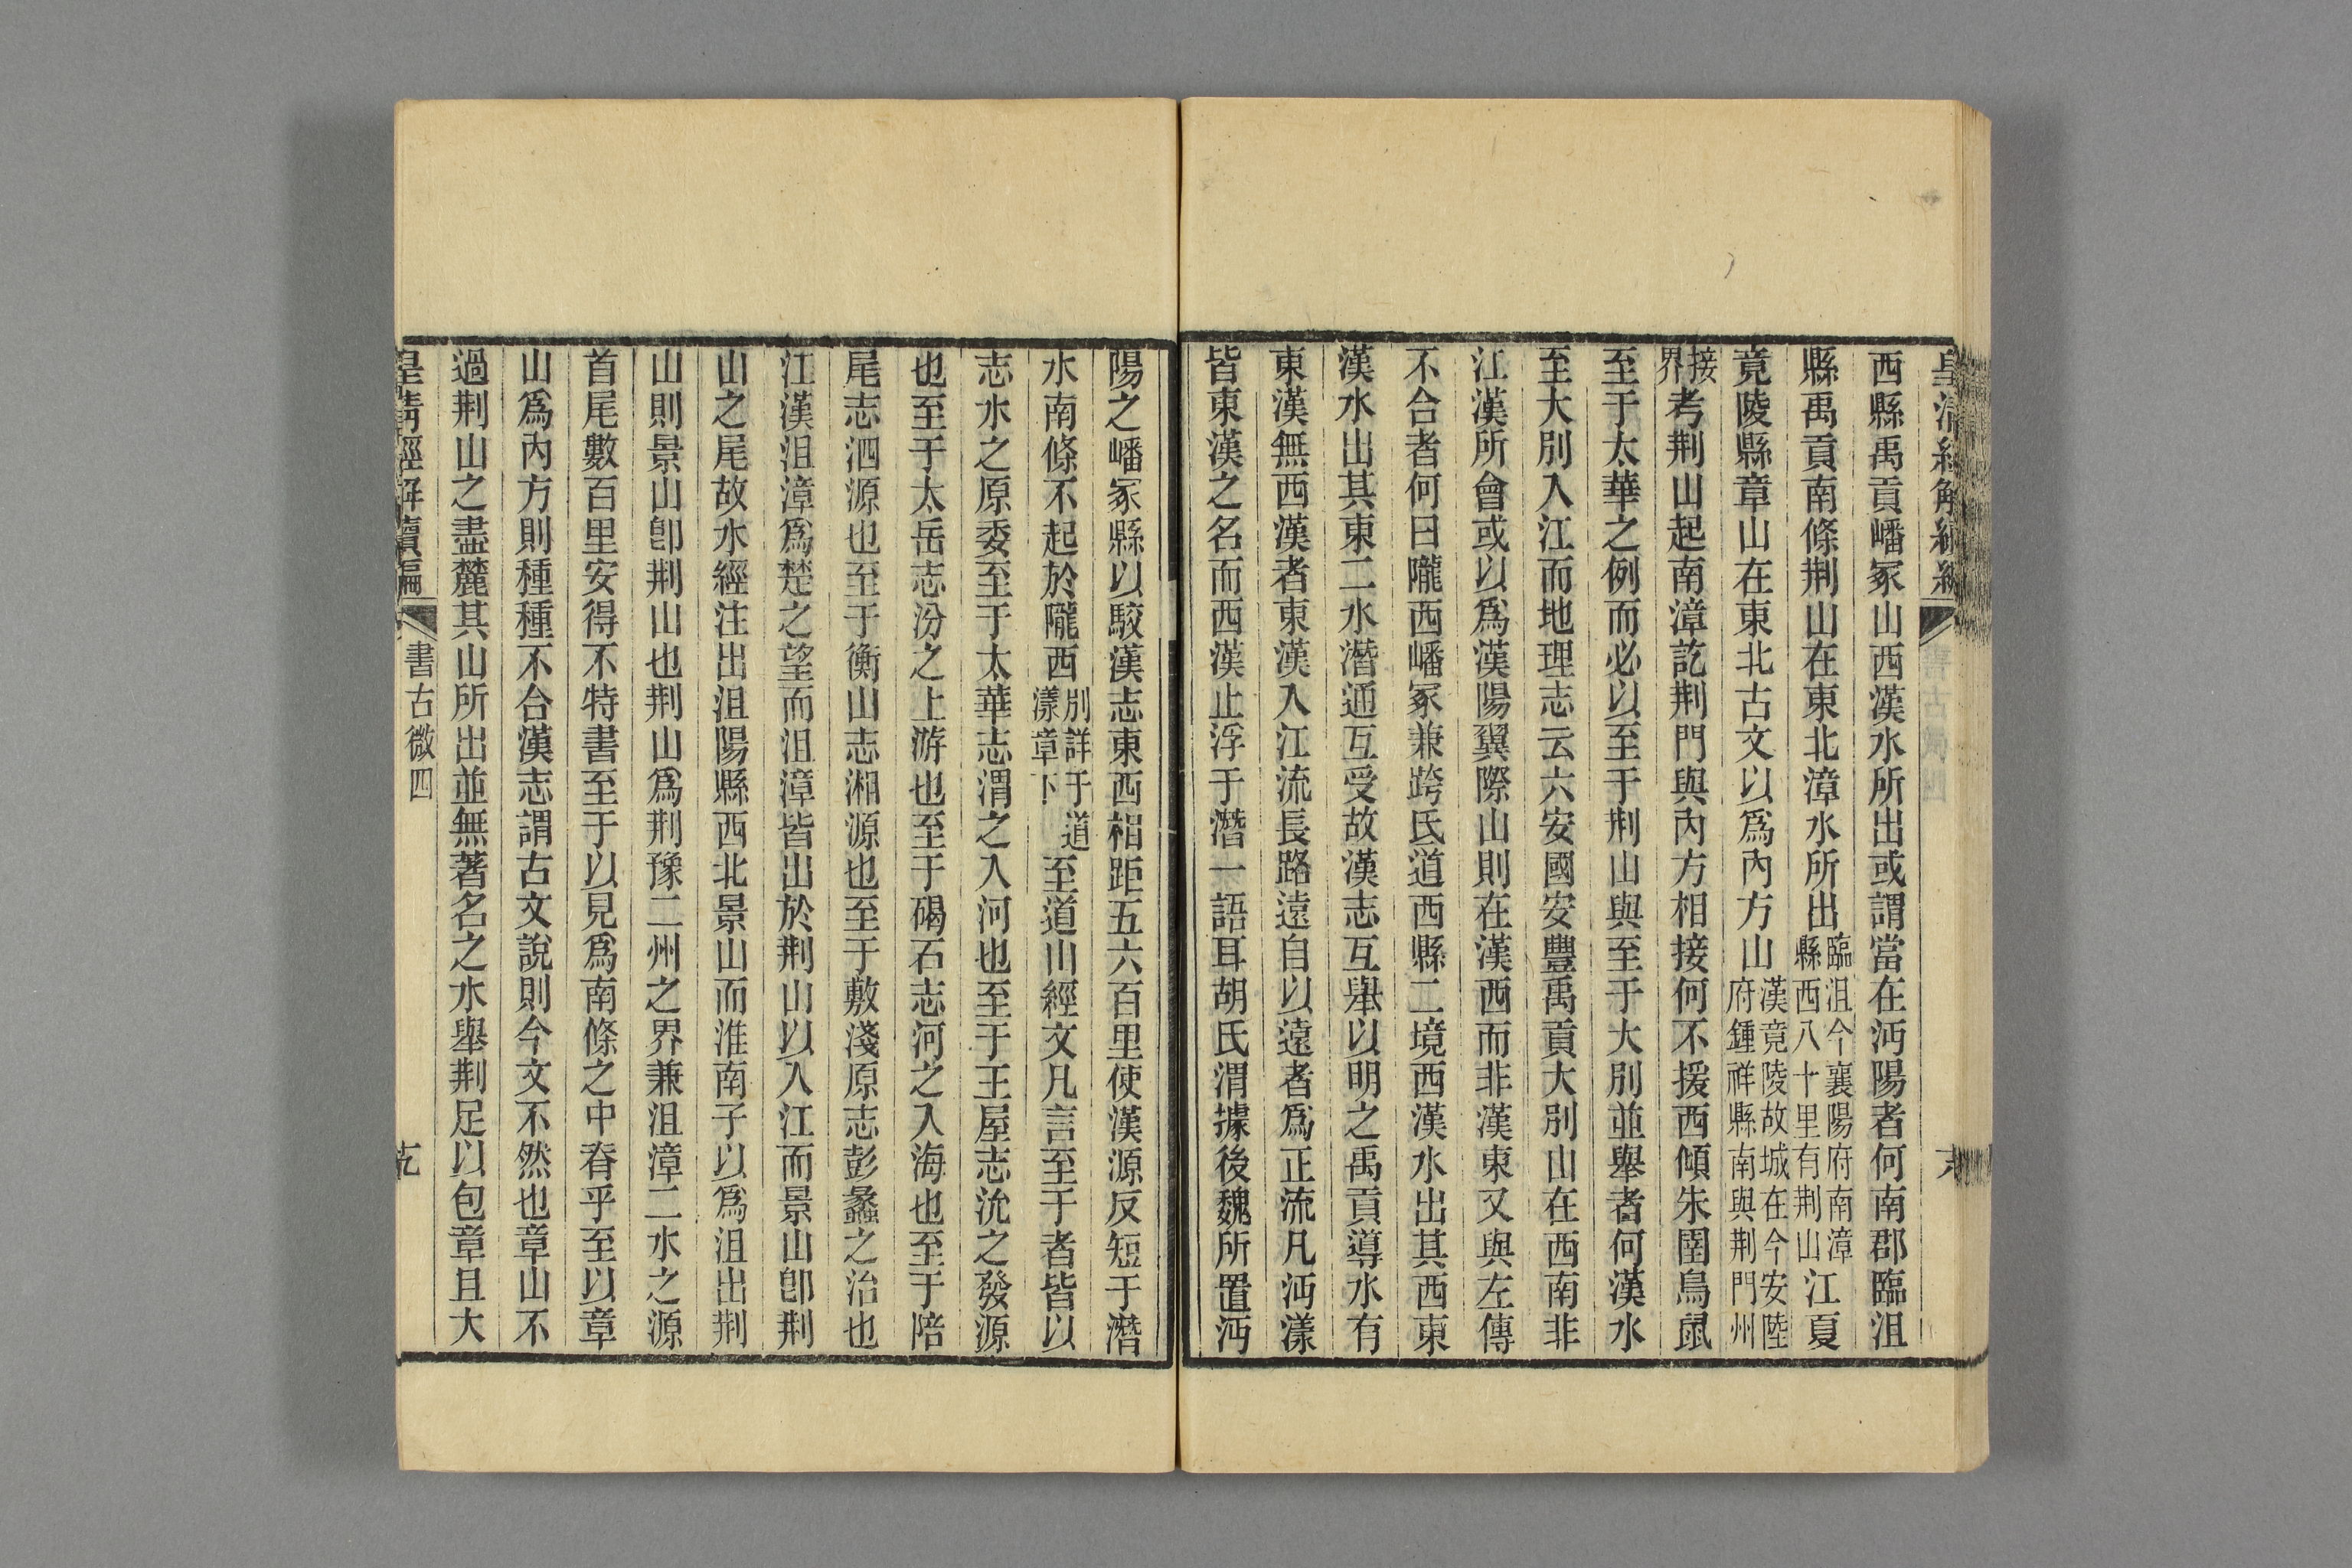 西縣禹貢嶓冢山西漢水所出或謂當在沔陽者何南郡臨沮
縣禹貢南條荆山在東北漳水所出臨沮今襄陽府南漳縣西八十里有荆山江夏
竟陵縣章山在東北古文以爲內方山漢竟陵故城在今安陸府鍾祥縣南與荆門州
接界考荆山起南漳訖荆門與內方相接何不援西傾朱圉鳥鼠
至于太華之例而必以至于荆山與至于大別並舉者何漢水
至大別入江而地理志云六安國安豐禹貢大別山在西南非
江漢所會或以爲漢陽翼際山則在漢西而非漢東又與左傳
不合者何曰隴西嶓冢兼跨氐道西縣二境西漢水出其西東
漢水出其東二水潛通互受故漢志互舉以明之禹貢導水有
東漢無西漢者東漢入江流長路遠自以遠者爲正流凡沔漾
皆東漢之名而西漢止浮于潛一語耳胡氏渭據後魏所置沔
陽之嶓冢縣以駮漢志東西相距五六百里使漢源反短于潛
水南條不起於隴西別詳于道漾章下至道山經文凡言至于者皆以
志水之原委至于太華志渭之入河也至于王屋志沇之發源
也至于太岳志汾之上游也至于碣石志河之入海也至于陪
尾志泗源也至于衡山志湘源也至于敷淺原志彭蠡之治也
江漢沮漳爲楚之望而沮漳皆出於荆山以入江而景山卽荆
山之尾故水經注出沮陽縣西北景山而淮南子以爲沮出荆
山則景山卽荆山也荆山爲荆豫二州之界兼沮漳二水之源
首尾數百里安得不特書至于以見爲南條之中脊乎至以章
山爲內方則種種不合漢志謂古文說則今文不然也章山不
過荆山之盡麓其山所出並無著名之水舉荆足以包章且大
皇清經解續編
書古微四